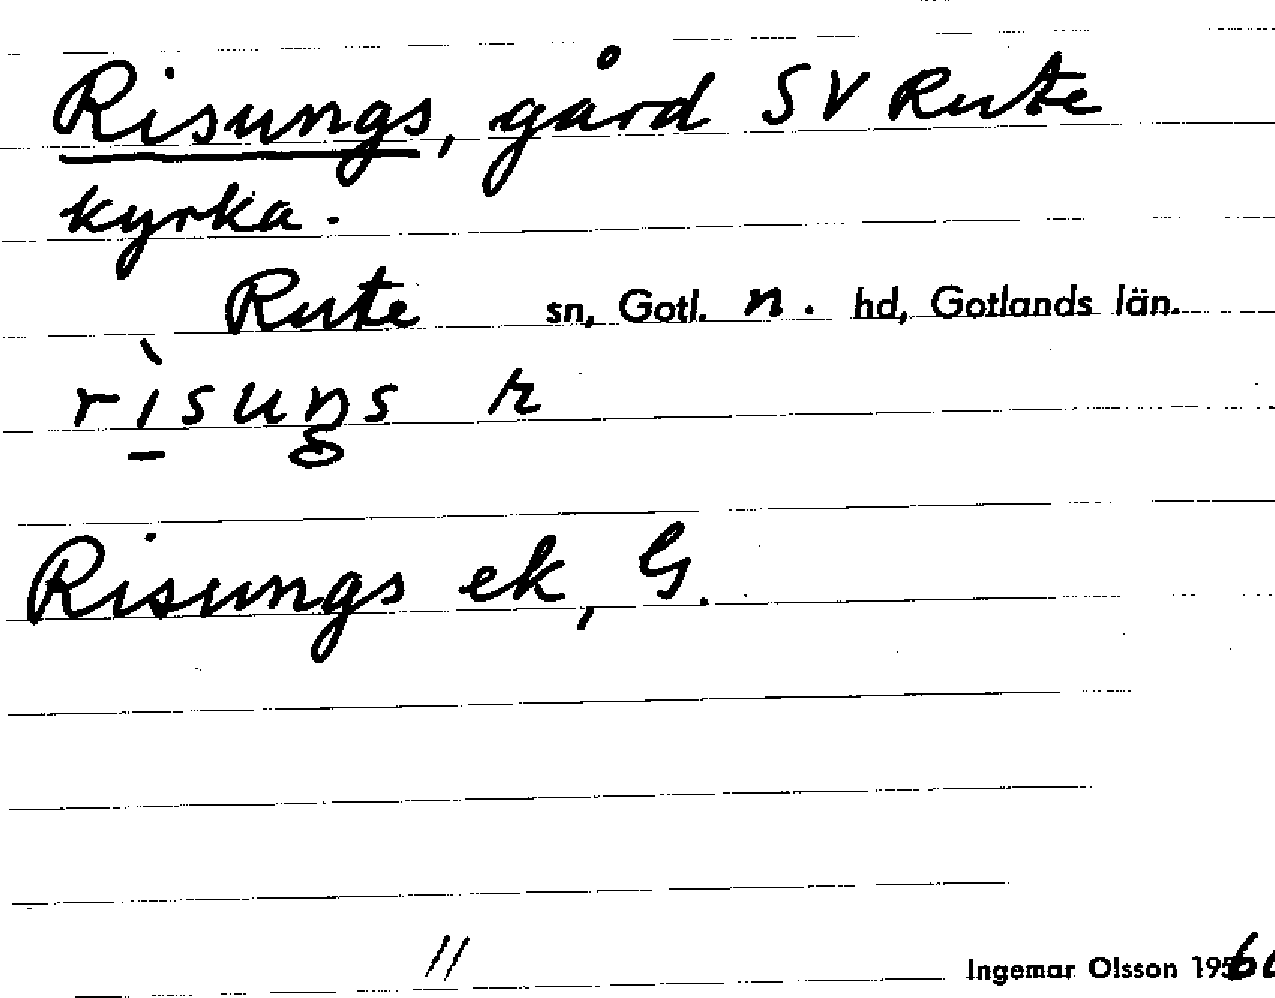 Risungs, gård SV Rute
kyrka.
Rute sn, Gotl. n. hd, Gotlands län.
rìsuŋs r
Risungs ek, G.
//
Ingemar Olsson 1960